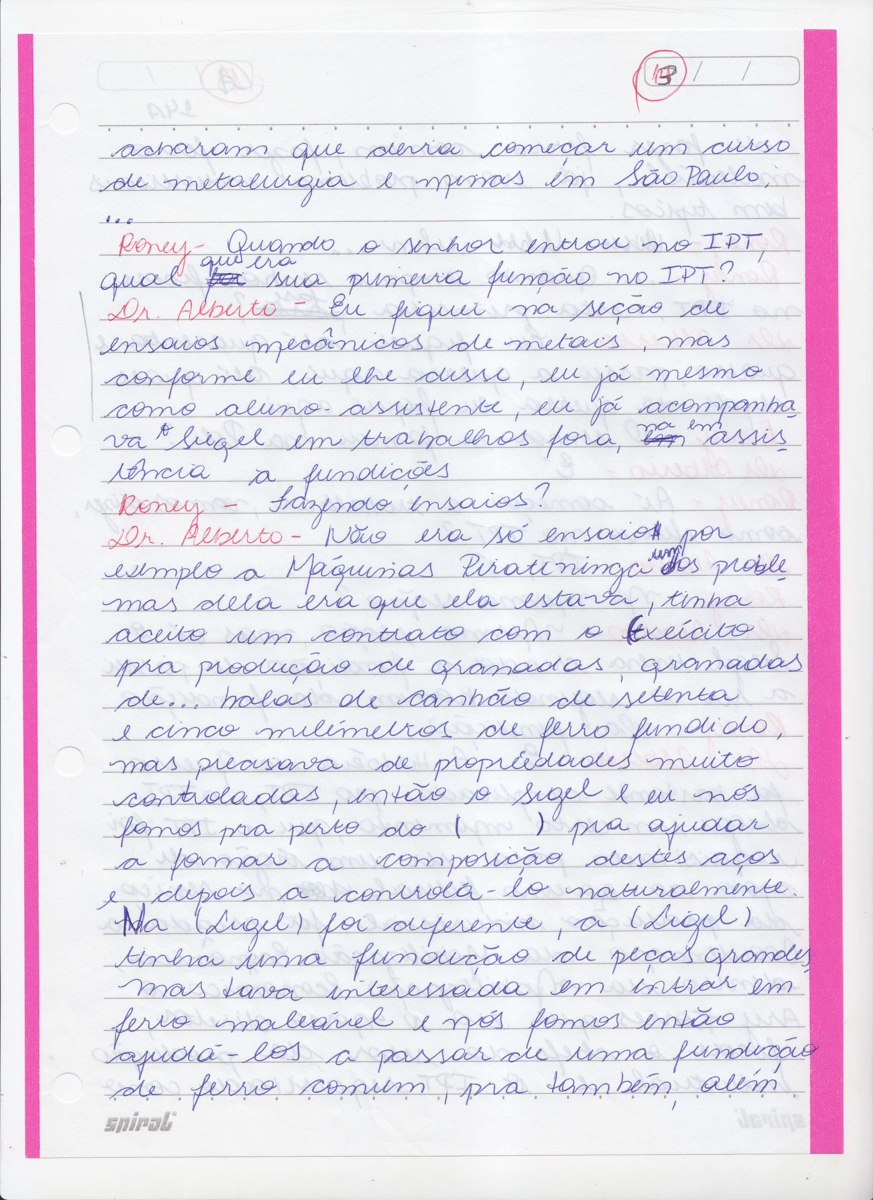 3
acharam que devia começar um curso
de metalurgia e minas em São Paulo,
...
Roney - Quando o senhor entrou no IPT,
qual que era sua primeira função no IPT?
Dr. Alberto - Eu fiquei na seção de
ensaios mecânicos de metais, mas
conforme eu lhe disse, eu já mesmo
como aluno-assistente, eu já acompanha-
va Siegel em trabalhos fora, na em assis-
tência a fundições
Roney - Fazendo ensaios?
Dr. Alberto - Não era só ensaio, por
exemplo a Máquinas Piratininga um dos proble-
mas dela era que ela estava, tinha
aceito um contrato com o Exército
pra produção de granadas, granadas
de... balas de canhão de setenta
e cinco milímetros de ferro fundido,
mas precisava de propriedades muito
controladas, então o Sigel e eu nós
fomos pra perto do (     ) pra ajudar
a formar a composição destes aços
e depois a controlá-lo naturalmente.
Na (Ligel) foi diferente, a (Ligel)
tinha uma fundição de peças grandes,
mas tava interessada em entrar em
ferro maleável e nós fomos então
ajudá-los a passar de uma fundição
de ferro comum, pra também, além
spiral